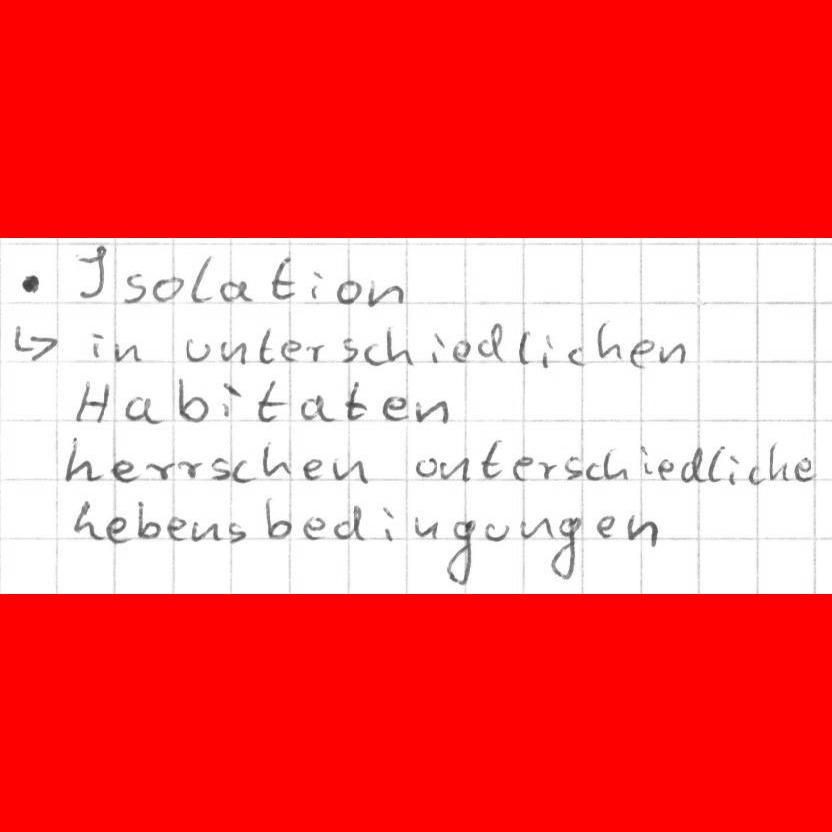 • Isolation
↳ in unterschiedlichen
Habitaten
herrschen unterschiedliche
Lebensbedingungen